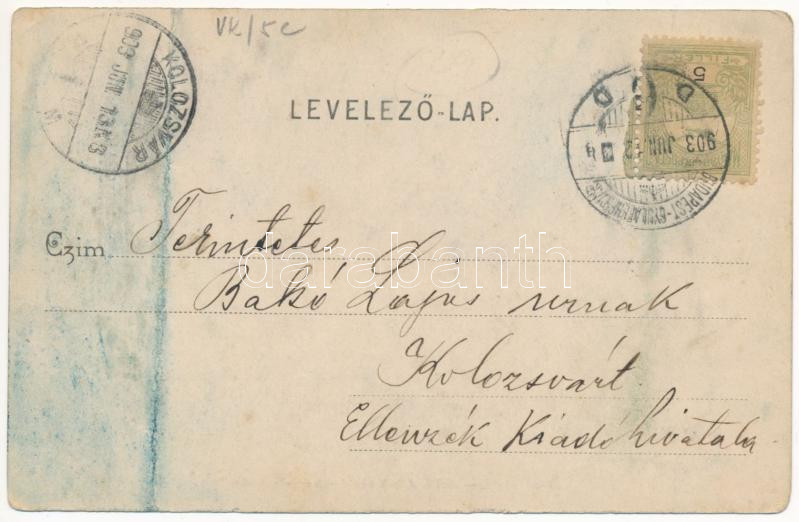 VK/5c
KOLOZSVÁR
903 JUN 13
LEVELEZŐ-LAP.
FILLÉR
5
D
903 JUN 12
BUDAPEST-GYULAFEHÉRVÁR
Czim Tekintetes
Bakó Lajos urnak
Kolozsvárt
Ellenzék Kiadóhivatala
darabanth
.com